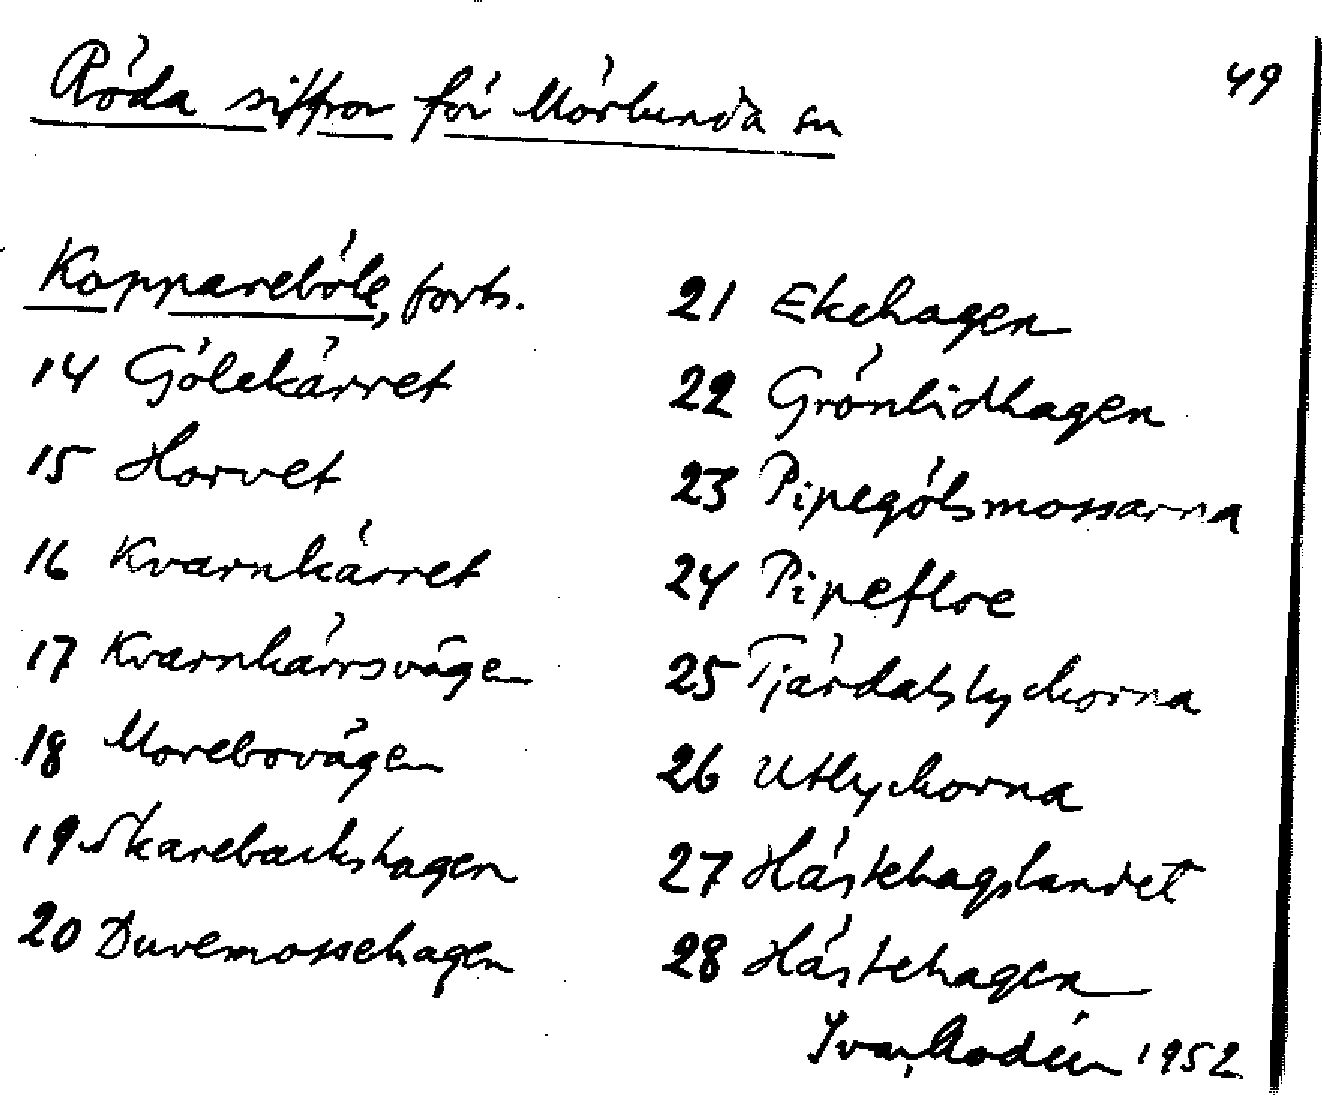 49
Röda siffror för Mörlunda sn
Koppareböle, forts.
14 Gölekärret
15 Horvet
16 Kvarnkärret
17 Kvarnkärrsvägen
18 Morebovägen
19 Skarebackshagen
20 Duvemossehagen
21 Ekehagen
22 Grönlidhagen
23 Pipegölsmossarna
24 Pipefloe
25 Tjärdalslyckorna
26 Utlyckorna
27 Hästehagslandet
28 Hästehagen
Ivar Modéer 1952